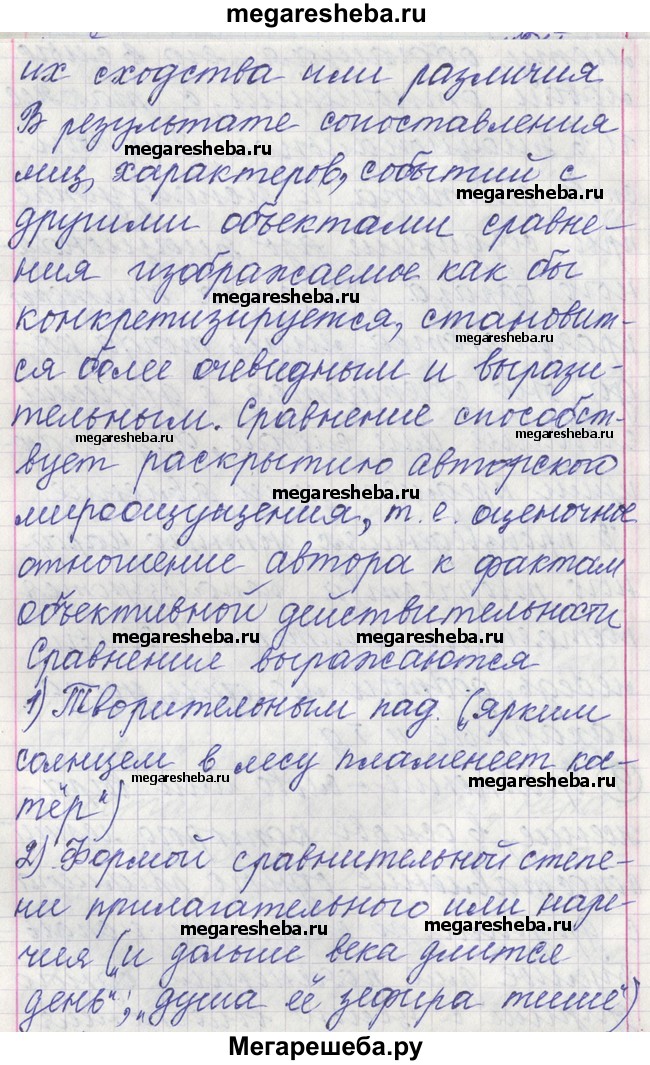 megaresheba.ru
их сходства или различия
В результате сопоставления
megaresheba.ru
лиц, характеров, событий с
megaresheba.ru
другими объектами сравне-
ния изображаемое как бы
megaresheba.ru
конкретизируется, становит-
megaresheba.ru
ся более очевидным и вырази-
тельным. Сравнение способст-
megaresheba.ru megaresheba.ru
вует раскрытию авторского
megaresheba.ru
мироощущения, т. е. оценочное
отношение автора к фактам
объективной действительности
megaresheba.ru megaresheba.ru
Сравнение выражаются
1) Творительным пад. („ярким
солнцем в лесу пламенеет ко-
megaresheba.ru megaresheba.ru
тёр“)
2) Формой сравнительной степе-
ни прилагательного или наре-
megaresheba.ru megaresheba.ru
чия („и дольше века длится
день“; „душа её зефира тише“)
Мегарешеба.ру